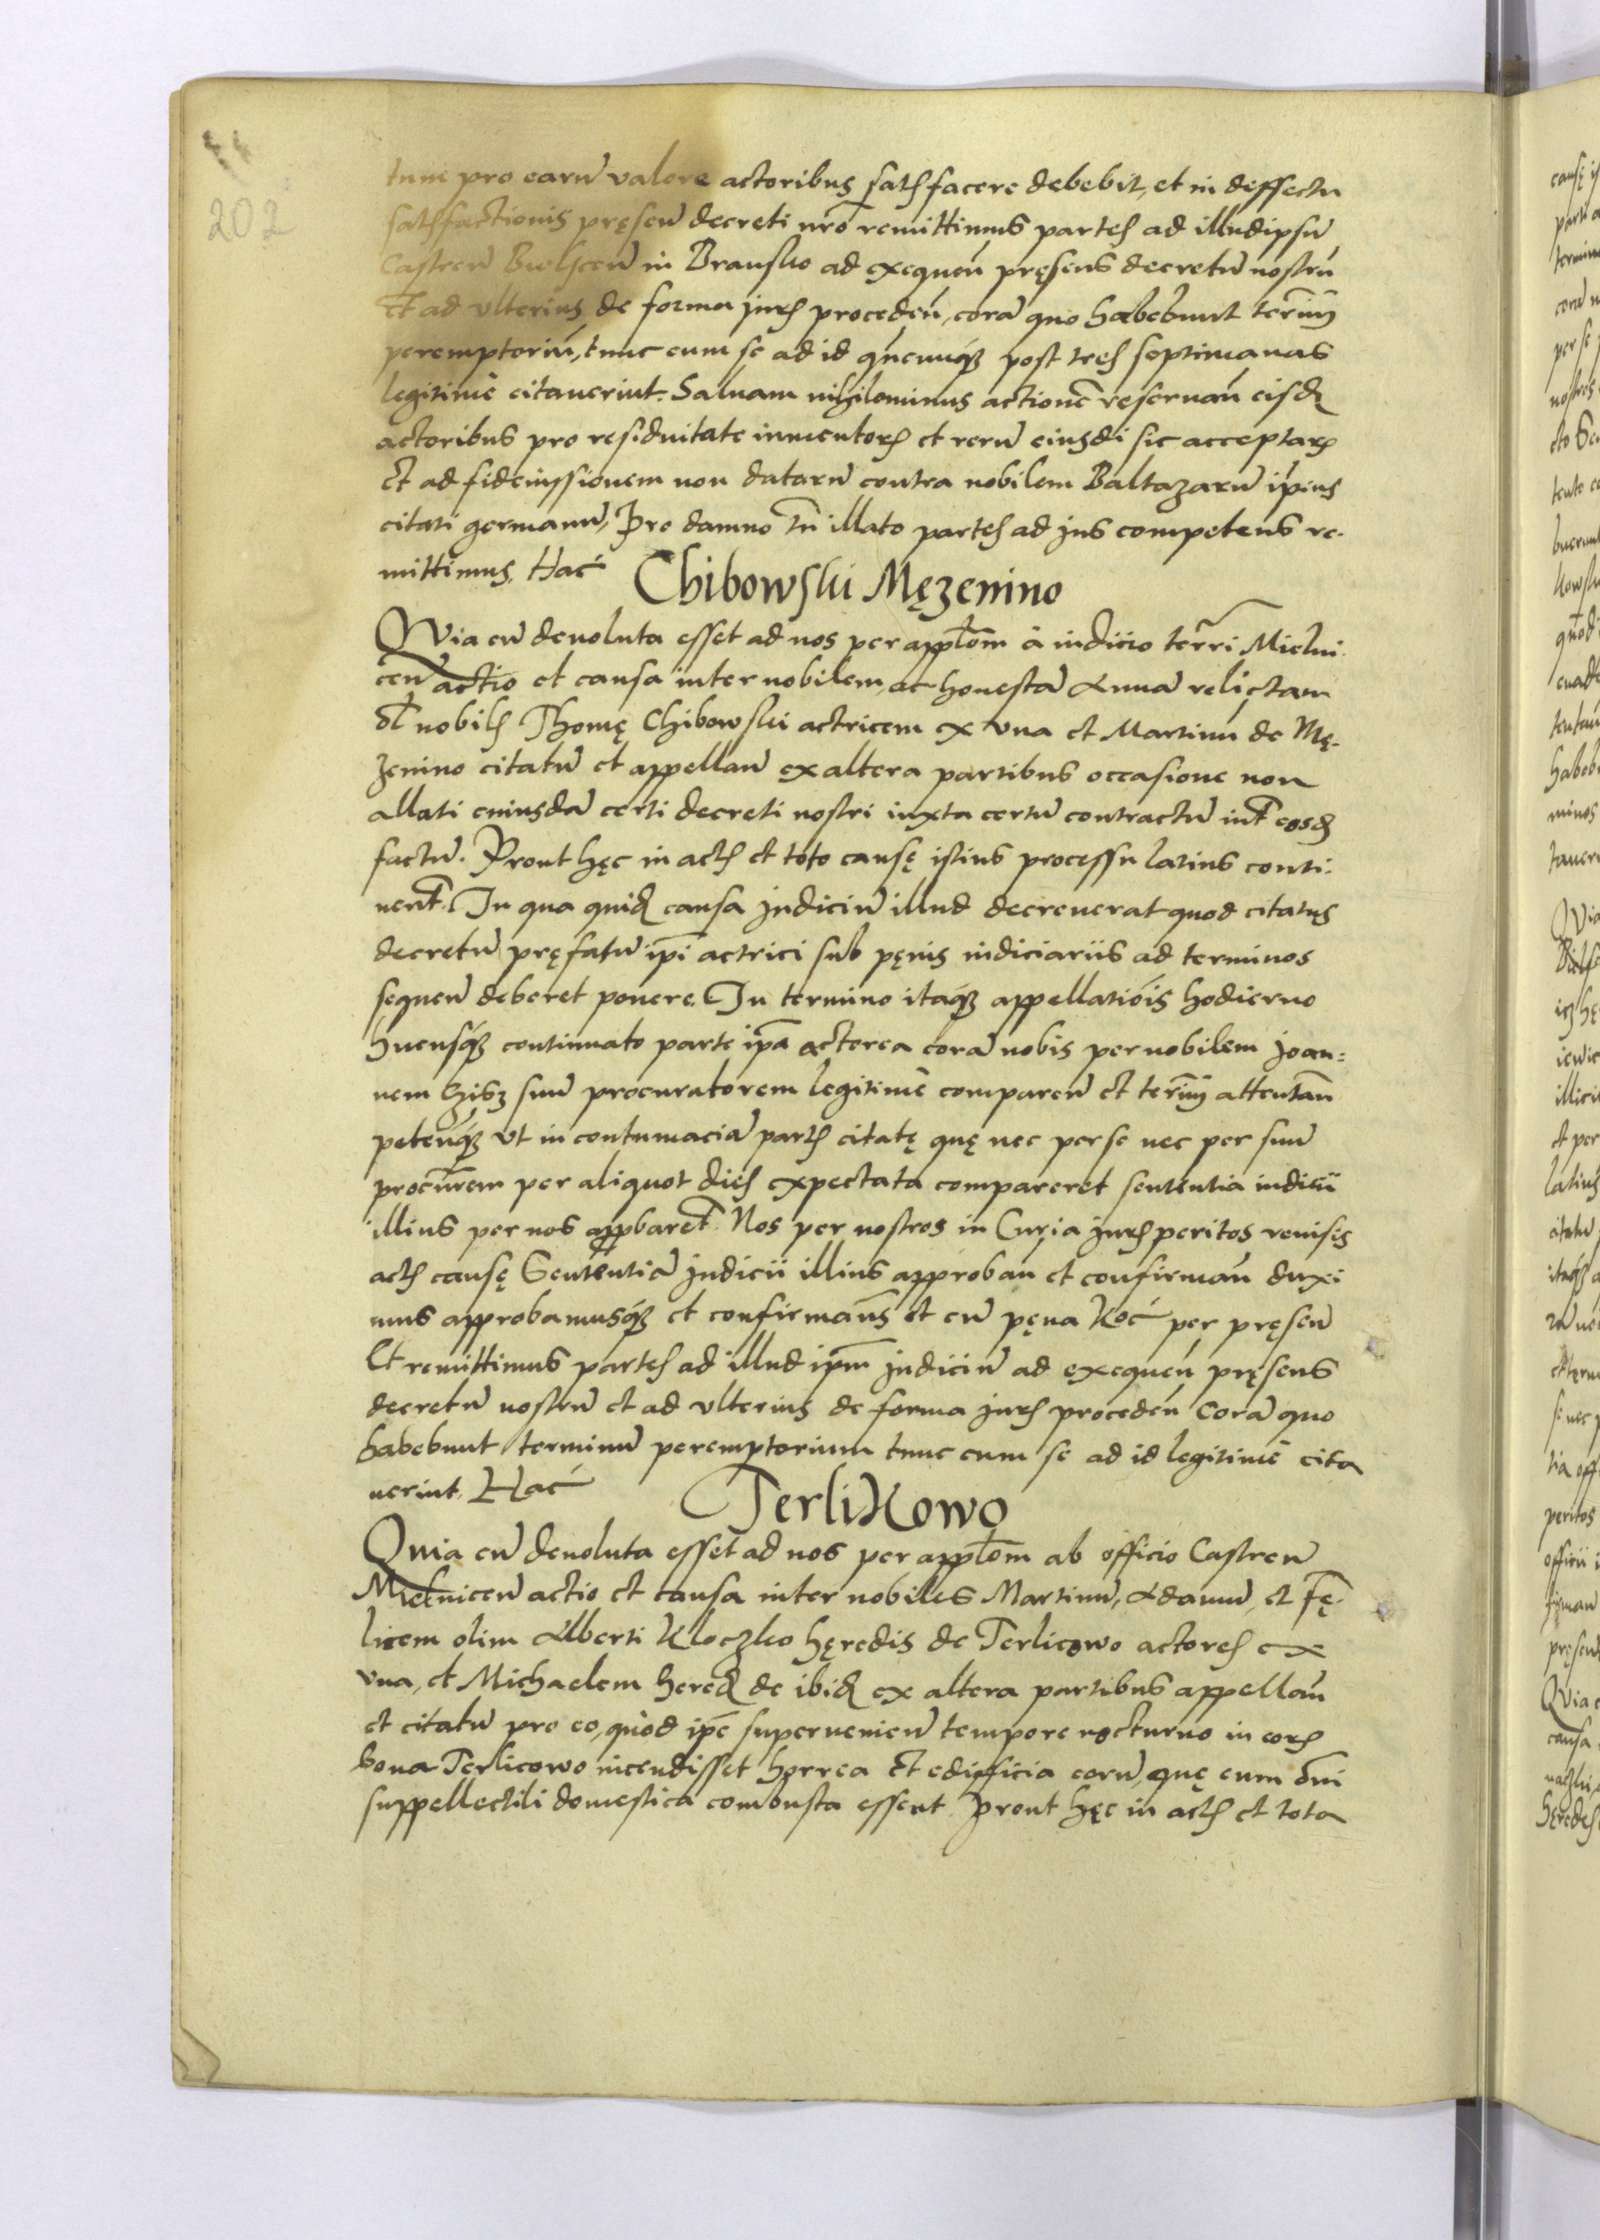 202
tunc pro earu valore actoribus satisfacere debebit, et in deffectu
satisfactionis pręsen decreti nro remittimus partes ad illud ipsu
Castren Bielscen in Bransko ad exequen pręsens decretu nostru
Et ad ulterius de forma juris proceden, cora quo habebunt termin
peremptoriu, tunc cum se ad id quenuq post tres septimanas
legitime citaverint. Saluam nihilominus actione reseruan eisd
actoribus pro residuitate inuentor et reru eiusdi sic acceptar
Et ad fideiussionem non dataru contra nobilem Baltazaru ipius
citati germanu, Pro damno tn illato partes ad jus competens re-
mittimus. Hac
Chibowski Męzenino
QVia cu deuoluta esset ad nos per applom a iudicio terri Mielni-
cen actio et causa inter nobilem, ac honesta Anna relictam
ol nobilis Thomę Chibowski actricem ex una et Martinu de Mę-
zenino citatu et appellan ex altera partibus occasione non
allati cuiusda certi decreti nostri iuxta certu contractu int eosd
factu. Prout hęc in actis et toto causę istius processu latius conti-
nent. In qua quid causa judiciu illud decreuerat quod citatus
decretu pręfatu ipi actrici sub pęnis iudiciariis ad terminos
sequen deberet ponere. In termino itaq appellatiois hodierno
hucusq continuato parte ipa actorea cora nobis per nobilem Joan=
nem suu procuratorem legitime comparen et termin attentan
petenq ut in contumacia partis citatę quę nec per se nec per suu
procurem per aliquot dies expectata compareret sententia iudicii
illius per nos appbaret. Nos per nostros in Curia juris peritos reuisis
actis causę Sententia judicii illius approban et confirman duxi
mus approbamusq et confirmams et cu pęna Koc per pręsen
Et remittimus partes ad illud ipm judiciu ad exequen pręsens
decretu nostru et ad ulterius de forma juris proceden Cora quo
habebunt terminu peremptorium tunc cum se ad id legitime cita
uerint. Hac
Terlikowo
Quia cu deuoluta esset ad nos per applom ab officio Castren
Mielnicen actio et causa inter nobiles Martinu, Adamu, et Fę-
licem olim Alberti Kloczko hęredis de Terlicowo actores ex
una, et Michaelem hered de ibid ex altera partibus appellan
et citatu pro eo, quod ipe superuenien tempore nocturno in eor
bona Terlicowo incendisset horrea Et edifficia eoru, quę cum oni
suppellectili domestica combusta essent. Prout hęc in actis et toto